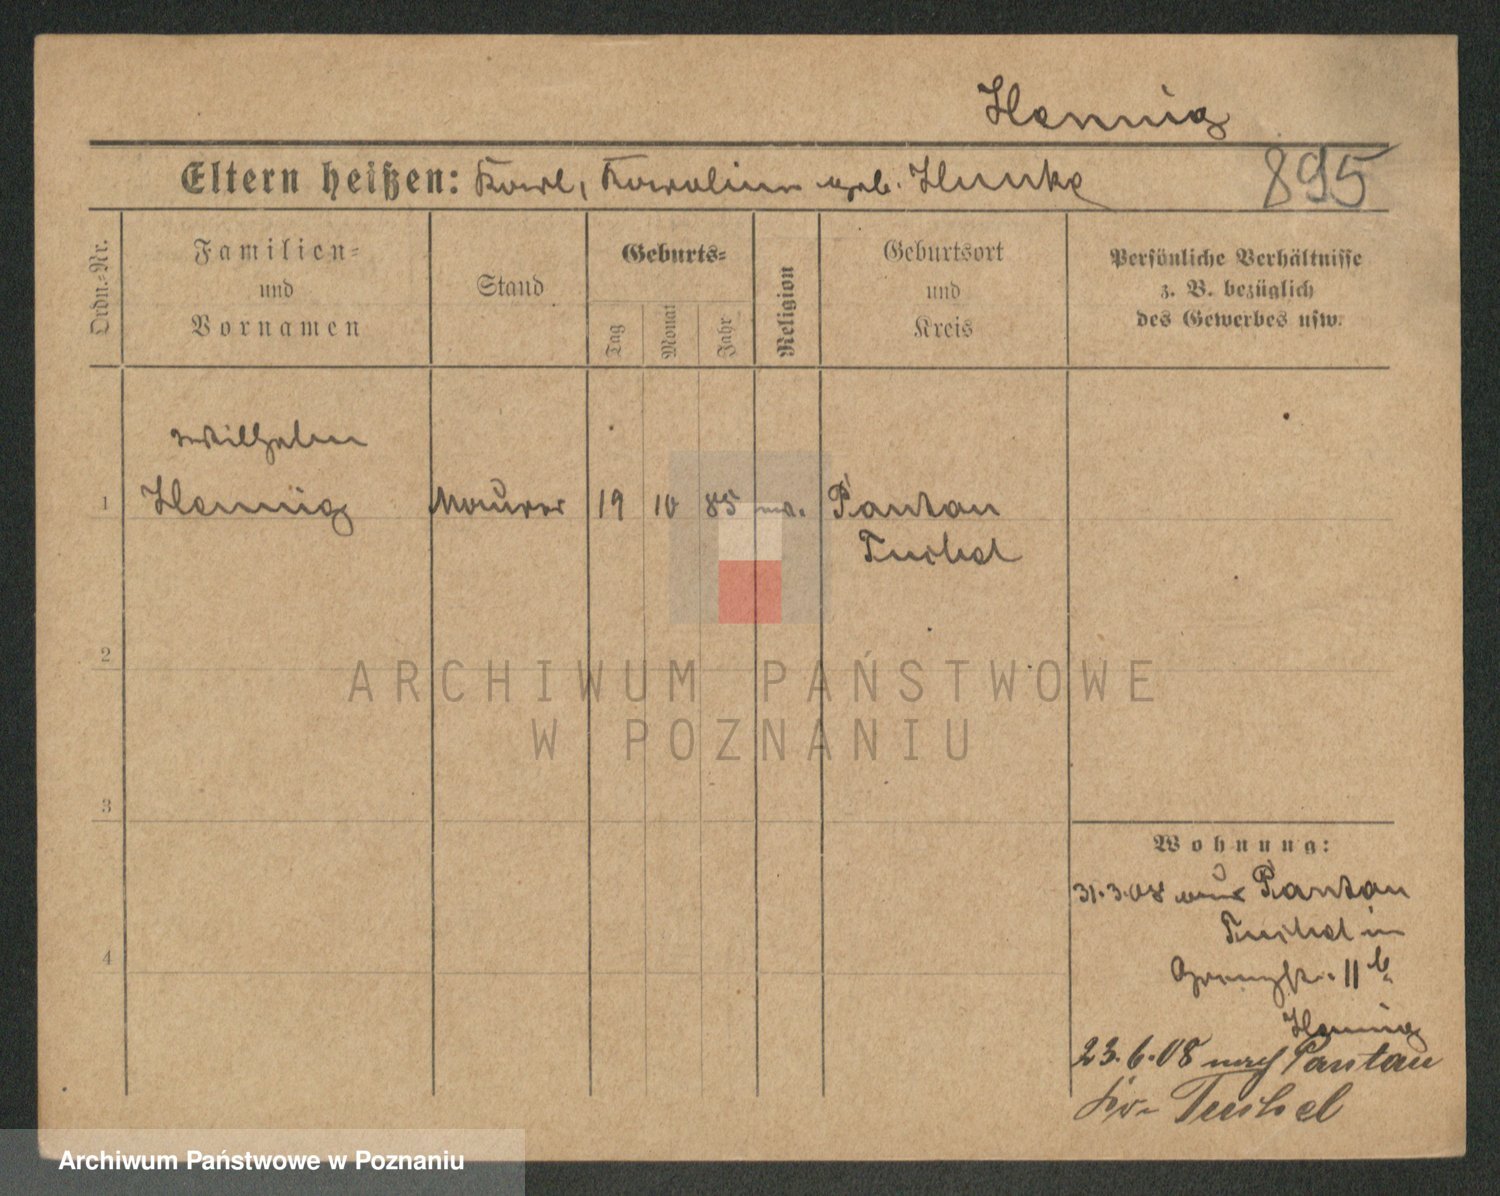 Hennig
Eltern heißen: Karl, Karoline geb. Hunke
895
Ordn.-Nr.
Familien-
und
Vornamen
Stand
Geburts-
Tag
Monat
Jahr
Religion
Geburtsort
und
Kreis
Persönliche Verhältnisse
z. B. bezüglich
des Gewerbes usw.
Wilhelm
1 Hennig Maurer 19 10 85 ev. Pantau
Tuchel
2
3
4
Wohnung:
31.3.08 aus Pantau
Tuchel in
Grenzstr. 11 b
Hennig
23.6.08 nach Pantau
Kr. Tuchel
ARCHIWUM PAŃSTWOWE
W POZNANIU
Archiwum Państwowe w Poznaniu